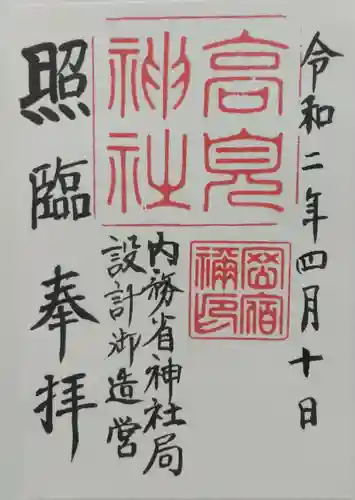 令和二年四月十日
高見
神社
岡宿
禰印
内務省神社局
設計御造営
奉拝
照臨